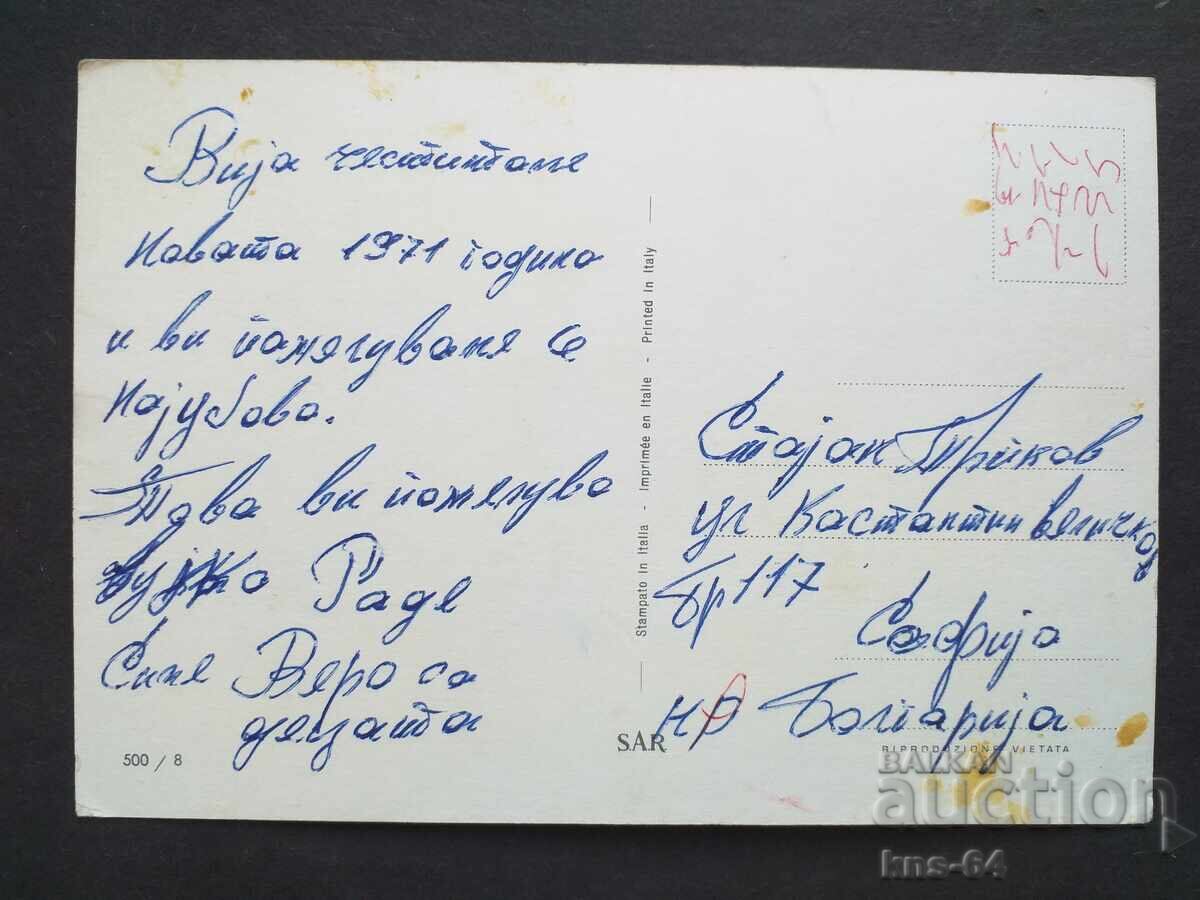 Вија честитаме
Новата 1971 година
и ви пожелуваме се
Најубово.
Това ви пожелува
вујко Раде
Сине Веро са
децата
500 / 8
Stampato in Italia - Imprimée en Italie - Printed in Italy
SAR
Стајан
ул Костантин величков
бр 117
Софија
НР Болгарија
RIPRODUZIONE VIETATA
BALKAN
auction
kns-64